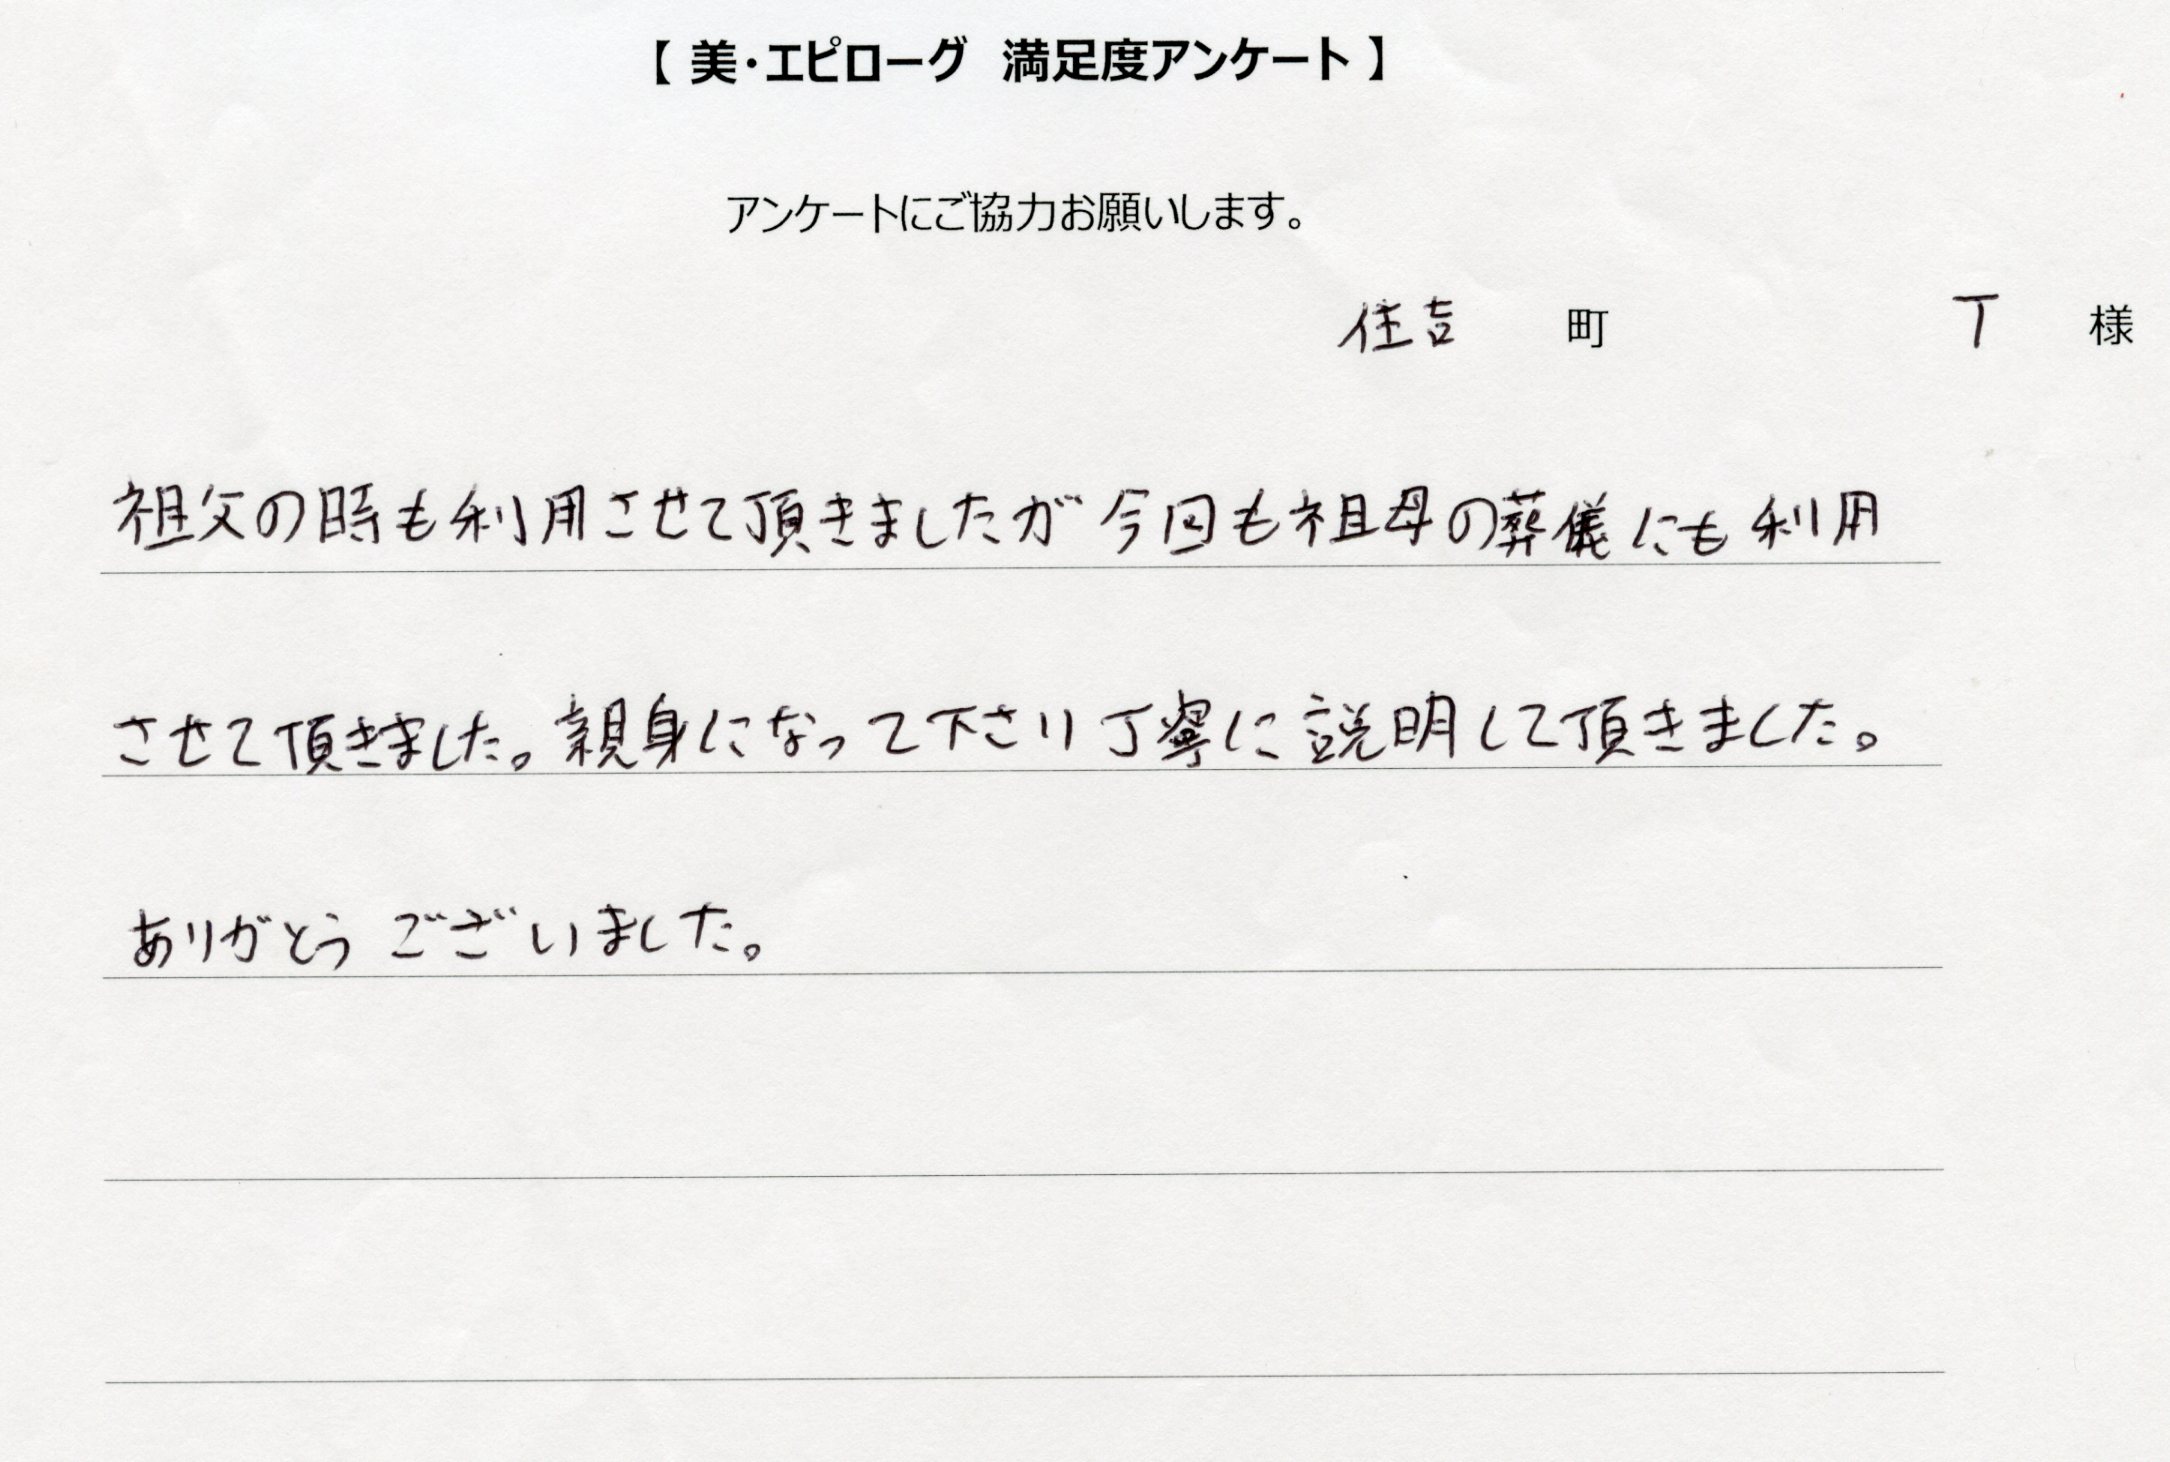 【 美・エピローグ 満足度アンケート 】
アンケートにご協力お願いします。
住吉 町 T 様
祖父の時も利用させて頂きましたが今回も祖母の葬儀にも利用
させて頂きました。親身になって下さり丁寧に説明して頂きました。
ありがとうございました。